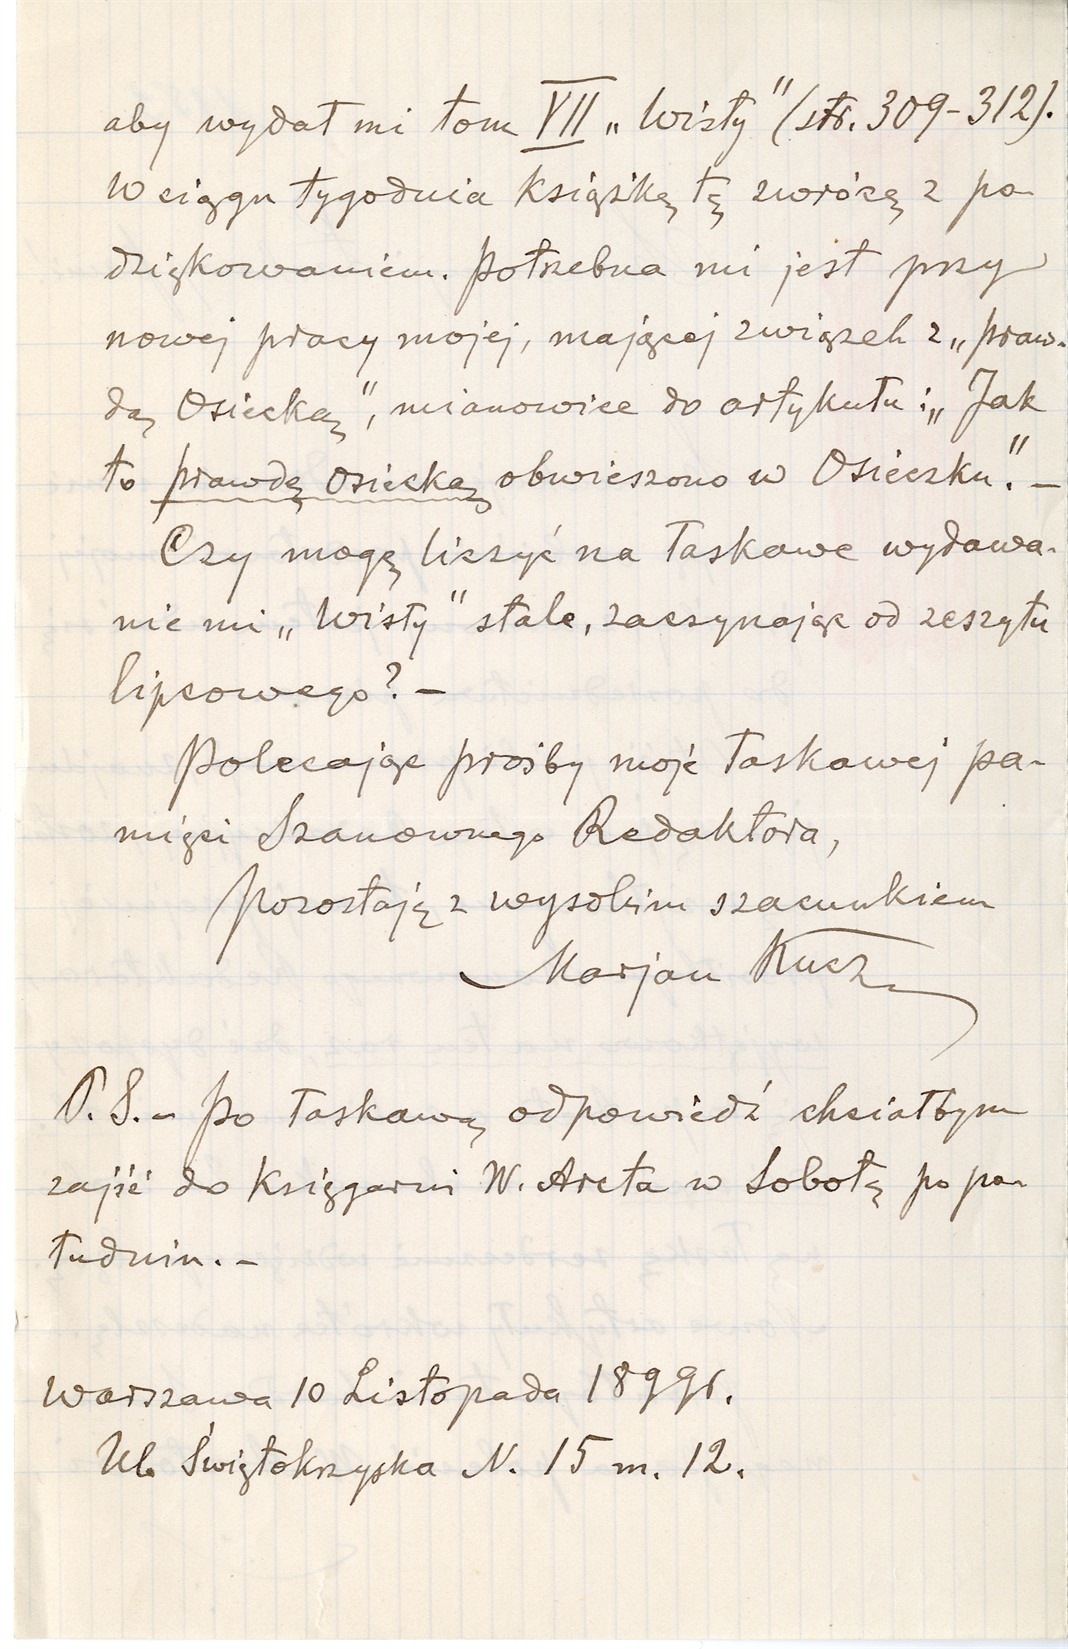 aby wydał mi tom VII „Wisły” (str. 309-312).
W ciągu tygodnia książkę tę zwrócę z po-
dziękowaniem. Potrzebna mi jest przy
nowej pracy mojej, mającej związek z „praw-
dą Osiecką”, mianowice do artykułu: „Jak
to prawdę osiecką obwieszono w Osiecku.” –
Czy mogę liczyć na łaskawe wydawa-
nie mi „Wisły” stale, zaczynając od zeszytu
lipcowego? –
Polecając prośby moje łaskawej pa-
mięci Szanownego Redaktora,
Pozostaję z wysokim szacunkiem
Marjan Kucz
P. S. – Po łaskawą odpowiedź chciałbym
zajść do Księgarni W. Arcta w Sobotę po po-
łudniu. –
Warszawa 10 Listopada 1899 r.
Ul. Świętokrzyska N. 15 m. 12.